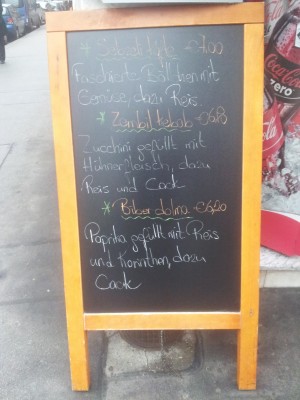 * Sebzeli köfte €7,00
Faschierte Bällchen mit
Gemüse, dazu Reis.
* Zambal kebab €6,80
Zucchini gefüllt mit
Hühnerfleisch, dazu
Reis und Cacik
* Biber dolma €6,20
Paprika gefüllt mit Reis
und Korinthen, dazu
Cacik
Coca-Cola
zero